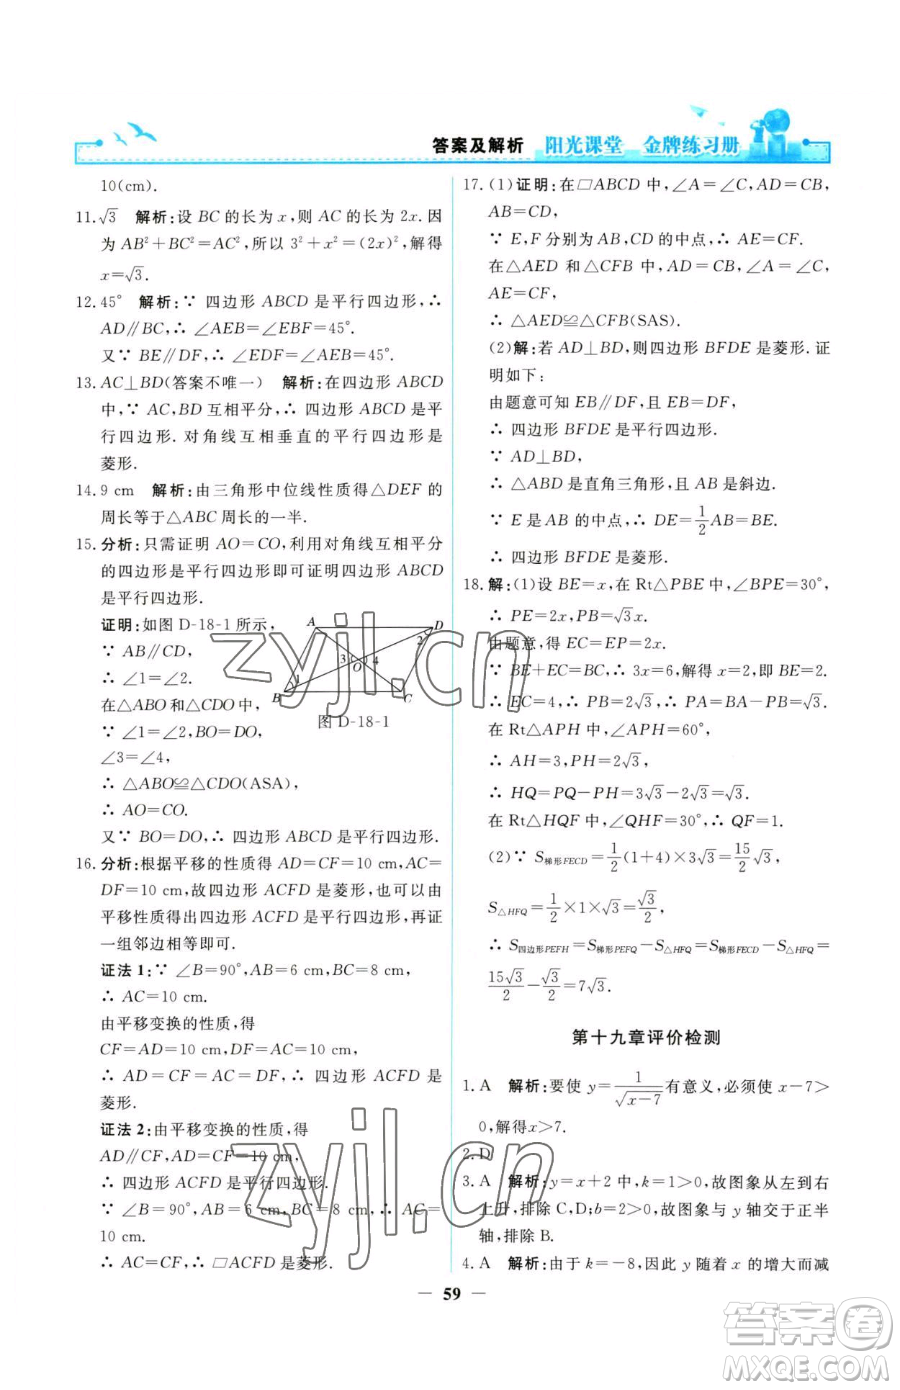 答案及解析 阳光课堂 金牌练习册
10(cm).
11.√3 解析:设 BC 的长为 x,则 AC 的长为 2x. 因
为 AB²+BC²=AC²,所以 3²+x²=(2x)²,解得
x=√3.
12.45° 解析:∵ 四边形 ABCD 是平行四边形,∴
AD∥BC,∴ ∠AEB=∠EBF=45°.
又∵ BE∥DF,∴ ∠EDF=∠AEB=45°.
13.AC⊥BD(答案不唯一) 解析:在四边形 ABCD
中,∵ AC,BD 互相平分,∴ 四边形 ABCD 是平
行四边形. 对角线互相垂直的平行四边形是
菱形.
14.9 cm 解析:由三角形中位线性质得△DEF 的
周长等于△ABC 周长的一半.
15.分析:只需证明 AO=CO,利用对角线互相平分
的四边形是平行四边形即可证明四边形 ABCD
是平行四边形.
证明:如图 D-18-1 所示,
∵ AB∥CD,
∴ ∠1=∠2.
在△ABO 和△CDO 中,
∵ ∠1=∠2,BO=DO,
∠3=∠4,
∴ △ABO≌△CDO(ASA),
∴ AO=CO.
又∵ BO=DO,∴ 四边形 ABCD 是平行四边形.
A D
2
3 4
O
1
B C
图 D-18-1
16.分析:根据平移的性质得 AD=CF=10 cm,AC=
DF=10 cm,故四边形 ACFD 是菱形. 也可以由
平移性质得出四边形 ACFD 是平行四边形,再证
一组邻边相等即可.
证法 1:∵ ∠B=90°,AB=6 cm,BC=8 cm,
∴ AC=10 cm.
由平移变换的性质,得
CF=AD=10 cm,DF=AC=10 cm.
∴ AD=CF=AC=DF,∴ 四边形 ACFD 是
菱形.
证法 2:由平移变换的性质,得
AD∥CF,AD=CF=10 cm,
∴ 四边形 ACFD 是平行四边形.
∵ ∠B=90°,AB=6 cm,BC=8 cm,∴ AC=
10 cm.
∴ AC=CF,∴ □ACFD 是菱形.
17.(1)证明:在□ABCD 中,∠A=∠C,AD=CB,
AB=CD,
∵ E,F 分别为 AB,CD 的中点,∴ AE=CF.
在△AED 和△CFB 中,AD=CB,∠A=∠C,
AE=CF,
∴ △AED≌△CFB(SAS).
(2)解:若 AD⊥BD,则四边形 BFDE 是菱形. 证
明如下:
由题意可知 EB∥DF,且 EB=DF,
∴ 四边形 BFDE 是平行四边形.
∵ AD⊥BD,
∴ △ABD 是直角三角形,且 AB 是斜边.
∵ E 是 AB 的中点,∴ DE=1/2 AB=BE.
∴ 四边形 BFDE 是菱形.
18.解:(1)设 BE=x,在 Rt△PBE 中,∠BPE=30°,
∴ PE=2x,PB=√3x.
由题意,得 EC=EP=2x.
∵ BE+EC=BC,∴ 3x=6,解得 x=2,即 BE=2.
∴ EC=4,∴ PB=2√3,∴ PA=BA-PB=√3.
在 Rt△APH 中,∠APH=60°,
∴ AH=3,PH=2√3,
∴ HQ=PQ-PH=3√3-2√3=√3.
在 Rt△HQF 中,∠QHF=30°,∴ QF=1.
(2)∵ S梯形FECD=1/2(1+4)×3√3=15/2√3,
S△HFQ=1/2×1×√3=√3/2,
∴ S四边形PEFH=S梯形PEFQ-S△HFQ=S梯形FECD-S△HFQ=
15√3/2-√3/2=7√3.
第十九章评价检测
1.A 解析:要使 y=1/√(x-7)有意义,必须使 x-7>
0,解得x>7.
2.D
3.A 解析:y=x+2 中,k=1>0,故图象从左到右
上升,排除 C,D;b=2>0,故图象与 y 轴交于正半
轴,排除 B.
4.A 解析:由于 k=-8,因此 y 随着 x 的增大而减
— 59 —
zyjl.cn
zyjl.cn
答案圈
MXQE.COM